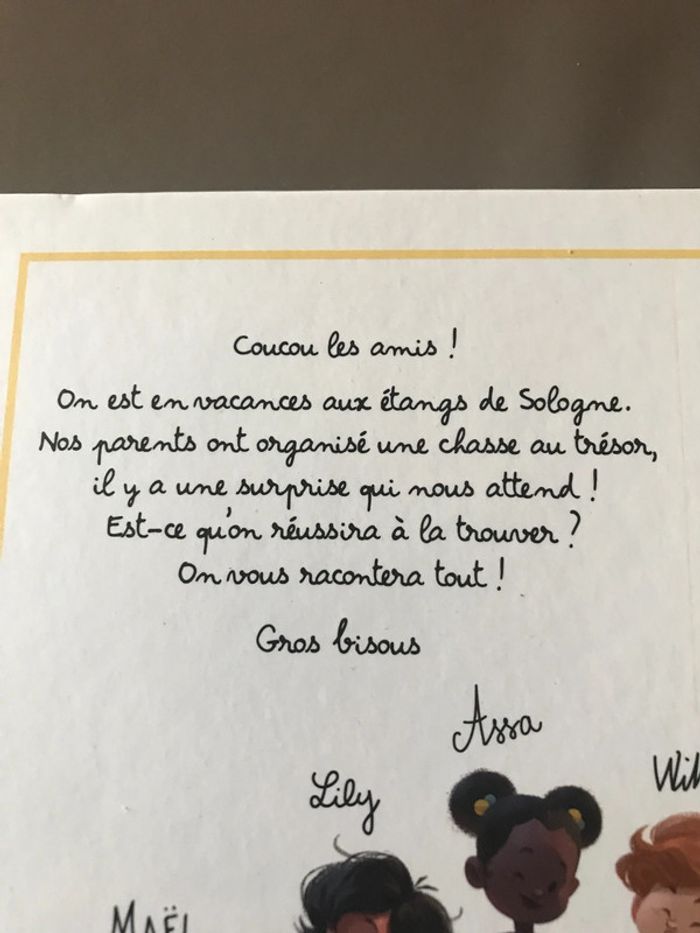 Coucou les amis !
On est en vacances aux étangs de Sologne.
Nos parents ont organisé une chasse au trésor,
il y a une surprise qui nous attend !
Est-ce qu'on réussira à la trouver ?
On vous racontera tout !
Gros bisous
Assa
Lily
MAËL